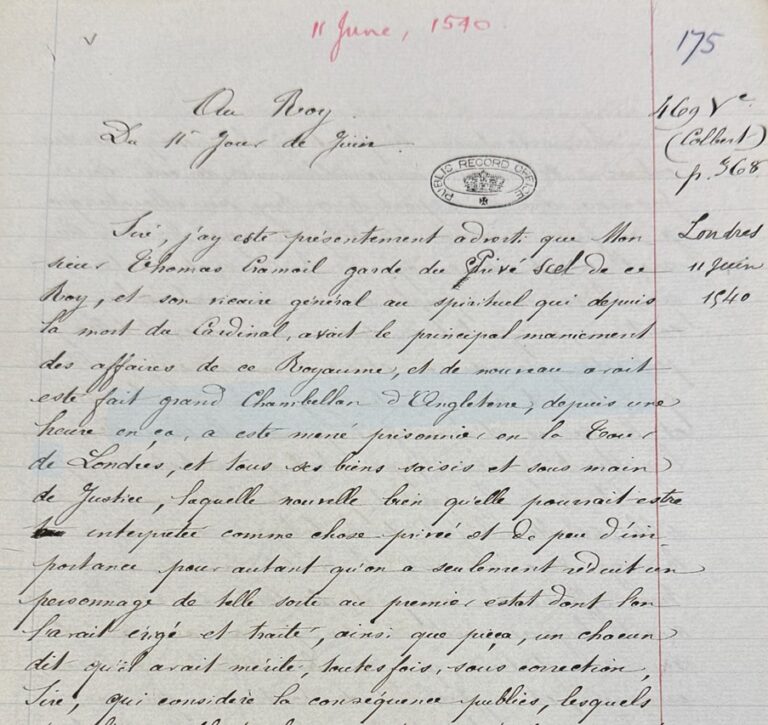 11 June, 1540
175
Au Roy
Du 11e Jour de Juin
469 Vo
(Colbert)
p. 368
PUBLIC RECORD OFFICE
Londres
11 Juin
1540
Siré, j'ay esté présentement adverti que Mon
sieur Thomas Cramail garde du Privé Scel de ce
Roy, et son vicaire général au spirituel qui depuis
la mort du Cardinal, avait le principal maniement
des affaires de ce Royaume, et de nouveau avait
esté fait grand Chambellan d'Angleterre, depuis une
heure en ça, a esté mené prisonnier en la Tour
de Londres, et tous ses biens saisis et sous main
de Justice, laquelle nouvelle bien qu'elle pourrait estre
interpretée comme chose privée et de peu d'im-
portance pour autant qu'on a seulement réduit un
personnage de telle sorte au premier estat dont l'on
l'avait érigé et traité, ainsi que pieça, un chacun
dit qu'il avait mérité, toutesfois, sous correction,
Sire, qui considère la conséquence publics, lesquels